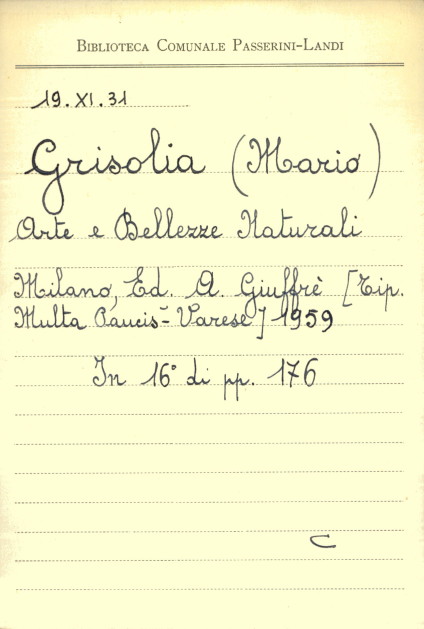 BIBLIOTECA COMUNALE PASSERINI-LANDI
19.XI.31
Grisolia (Mario)
Arte e Bellezze Naturali
Milano, Ed. A. Giuffrè [Tip.
Multa Paucis - Varese] 1959
In 16° di pp. 176
C